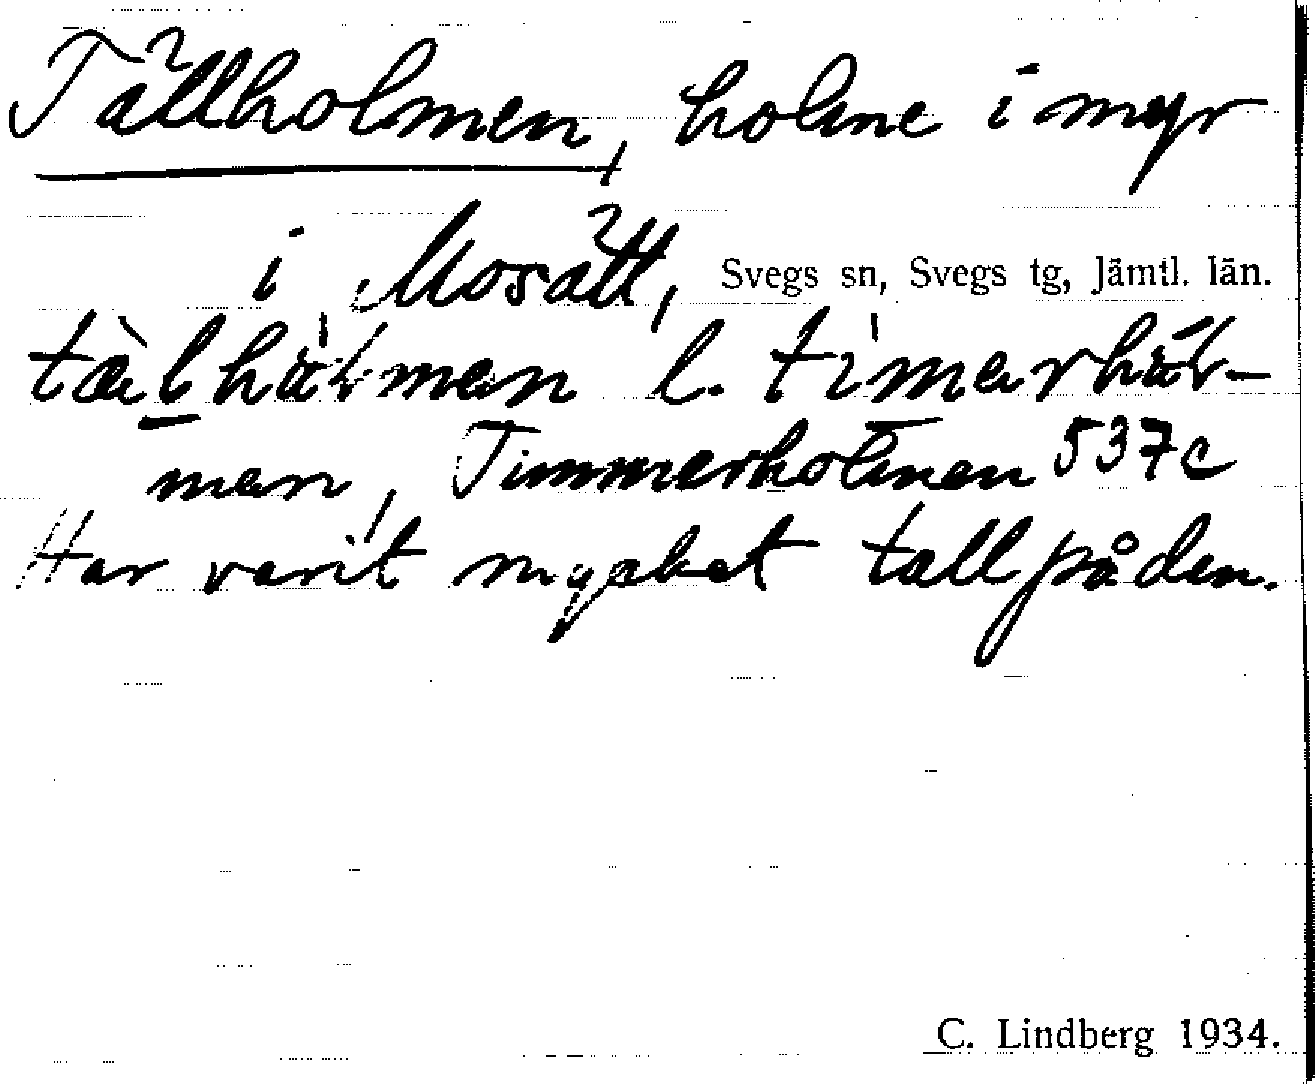 Tällholmen, holme i myr
i Mosätt, Svegs sn, Svegs tg, Jämtl. län.
l.
Timmerholmen 537c
Har varit mycket tall på den.
C. Lindberg 1934.